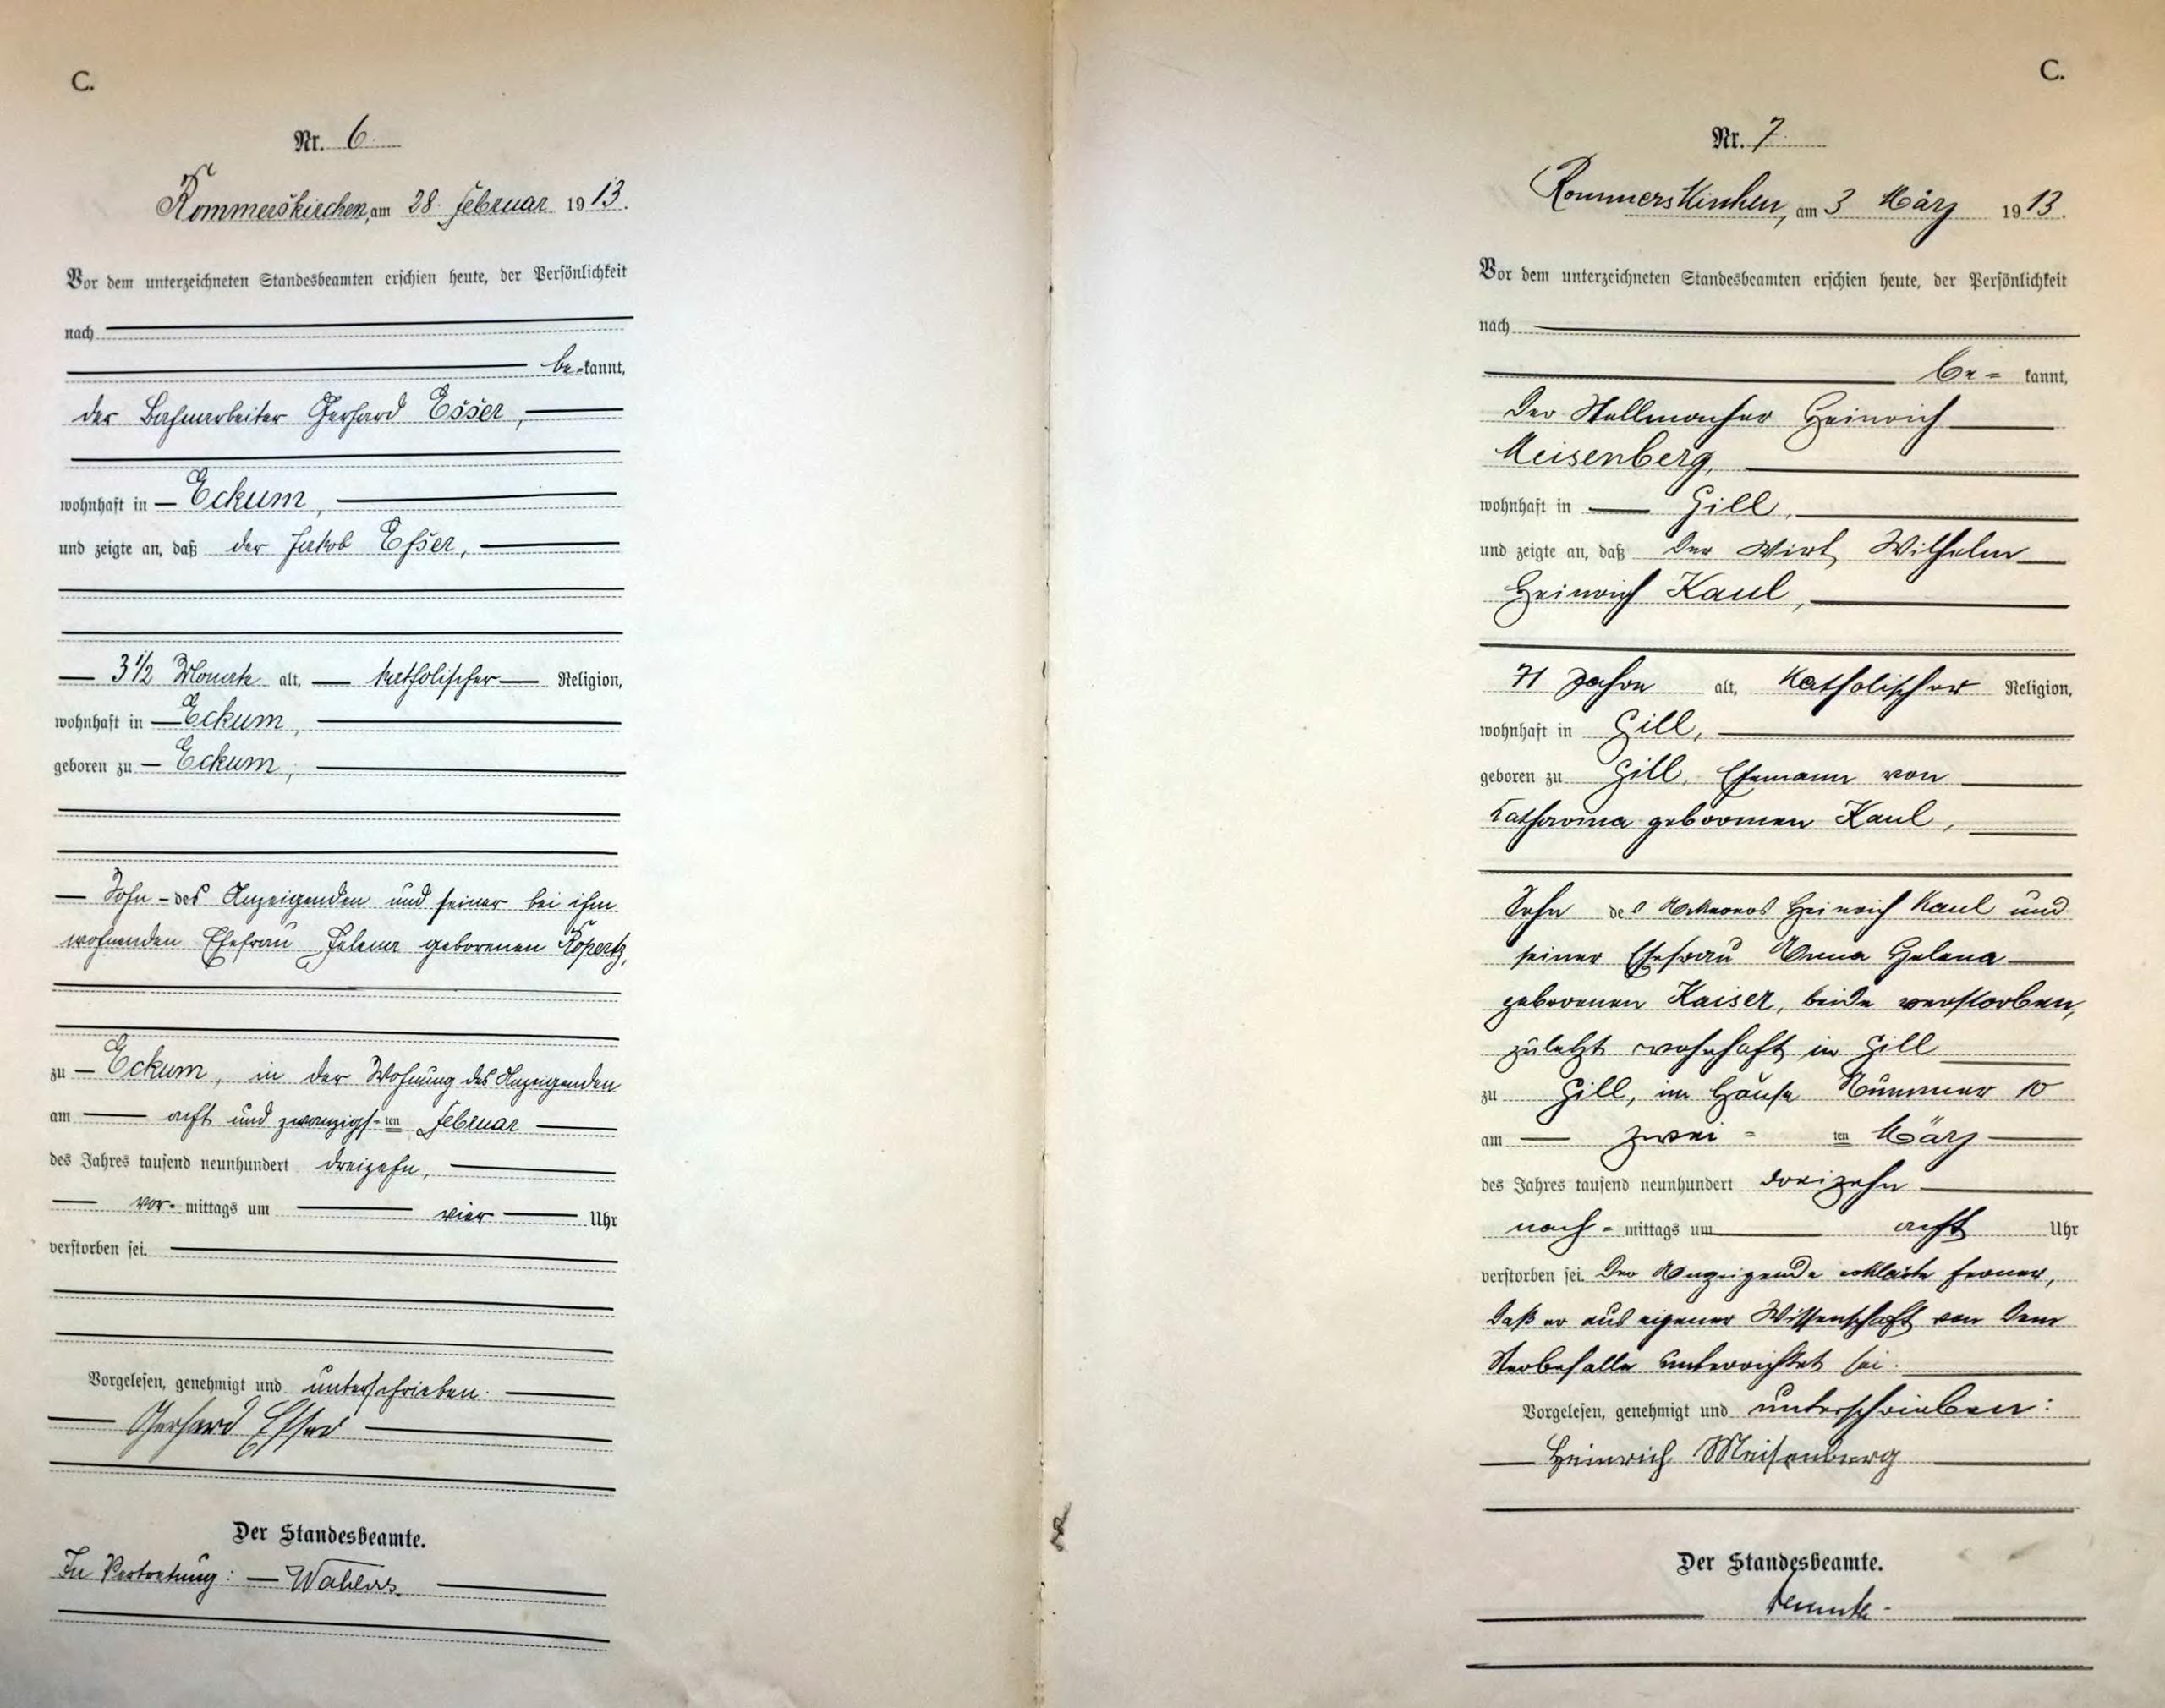 C.
Nr. 6.
Rommerskirchen, am 28. Februar 1913.
Vor dem unterzeichneten Standesbeamten erschien heute, der Persönlichkeit
nach
be-kannt,
der Bahnarbeiter Gerhard Esser,
wohnhaft in Eckum,
und zeigte an, daß der Jakob Esser,
3 1/2 Monate alt, katholischer Religion,
wohnhaft in Eckum,
geboren zu Eckum,
Sohn des Anzeigenden und seiner bei ihm
wohnenden Ehefrau Helena geborenen Köpertz,
zu Eckum, in der Wohnung des Anzeigenden
am acht und zwanzigs-ten Februar
des Jahres tausend neunhundert dreizehn,
vor-mittags um vier Uhr
verstorben sei.
Vorgelesen, genehmigt und unterschrieben.
Gerhard Esser
Der Standesbeamte.
In Vertretung:
C.
Nr. 7.
Rommerskirchen, am 3 März 1913.
Vor dem unterzeichneten Standesbeamten erschien heute, der Persönlichkeit
nach
be= kannt,
der Stellmacher Heinrich
Meisenberg,
wohnhaft in Gill,
und zeigte an, daß der Wirt Wilhelm
Heinrich Kaul,
71 Jahre alt, katholischer Religion,
wohnhaft in Gill,
geboren zu Gill, Ehemann von
Katharina geborenen Kaul,
Sohn des Ackerers Heinrich Kaul und
seiner Ehefrau Anna Helena
geborenen Kaiser, beide verstorben,
zuletzt wohnhaft in Gill
zu Gill, im Hause Nummer 10
am zwei= ten März
des Jahres tausend neunhundert dreizehn
nach= mittags um acht Uhr
verstorben sei. Der Anzeigende erklärte ferner,
daß er aus eigener Wissenschaft von dem
Sterbefalle unterrichtet sei.
Vorgelesen, genehmigt und unterschrieben:
Heinrich Meisenberg
Der Standesbeamte.